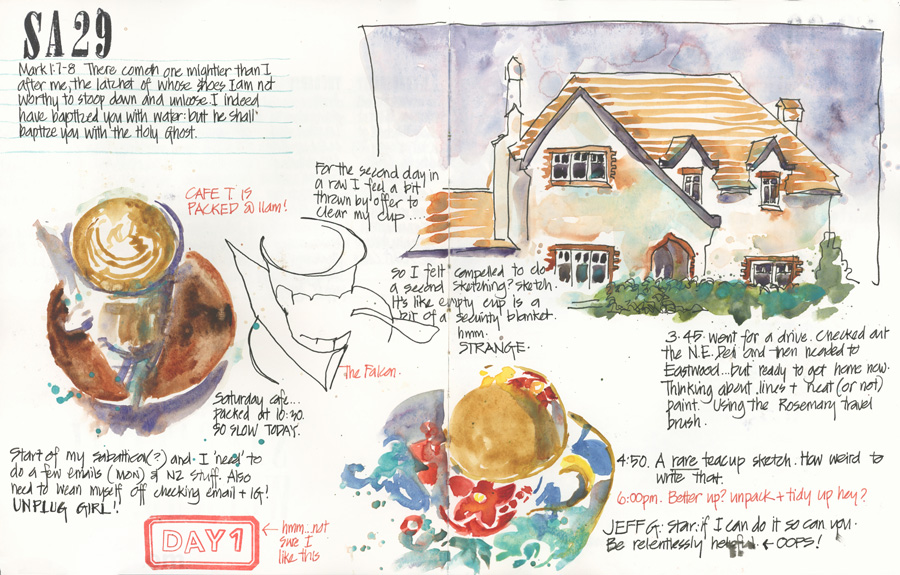 SA29
Mark 1:7-8 There cometh one mightier than I
after me, the latchet of whose shoes I am not
worthy to stoop down and unloose. I indeed
have baptized you with water: but he shall
baptize you with the Holy Ghost.
CAFE T. IS
PACKED @ 11am!
For the second day in
a row I feel a bit
thrown by offer to
clear my cup....
So I felt compelled to do
a second sketching? sketch.
It's like empty cup is a
bit of a security blanket.
hmm.
STRANGE.
The Falcon.
Saturday cafe...
packed at 10:30.
SO SLOW TODAY.
Start of my sabattical(?) and I 'need' to
do a few emails (MON) & NZ stuff. Also
need to wean myself off checking email + IG!
UNPLUG GIRL!
DAY 1
← hmm...not
sure I
like this
3:45. Went for a drive. Checked out
the N.E. Ped and then headed to
Eastwood...but ready to get home now.
Thinking about lines + neat (or not)
paint. Using the Rosemary travel
brush.
4:50. A rare teacup sketch. How weird to
write that.
6:00pm. Better up? unpack + tidy up hey?
JEFF G: star: if I can do it so can you.
Be relentlessly helpful. ← OOPS!